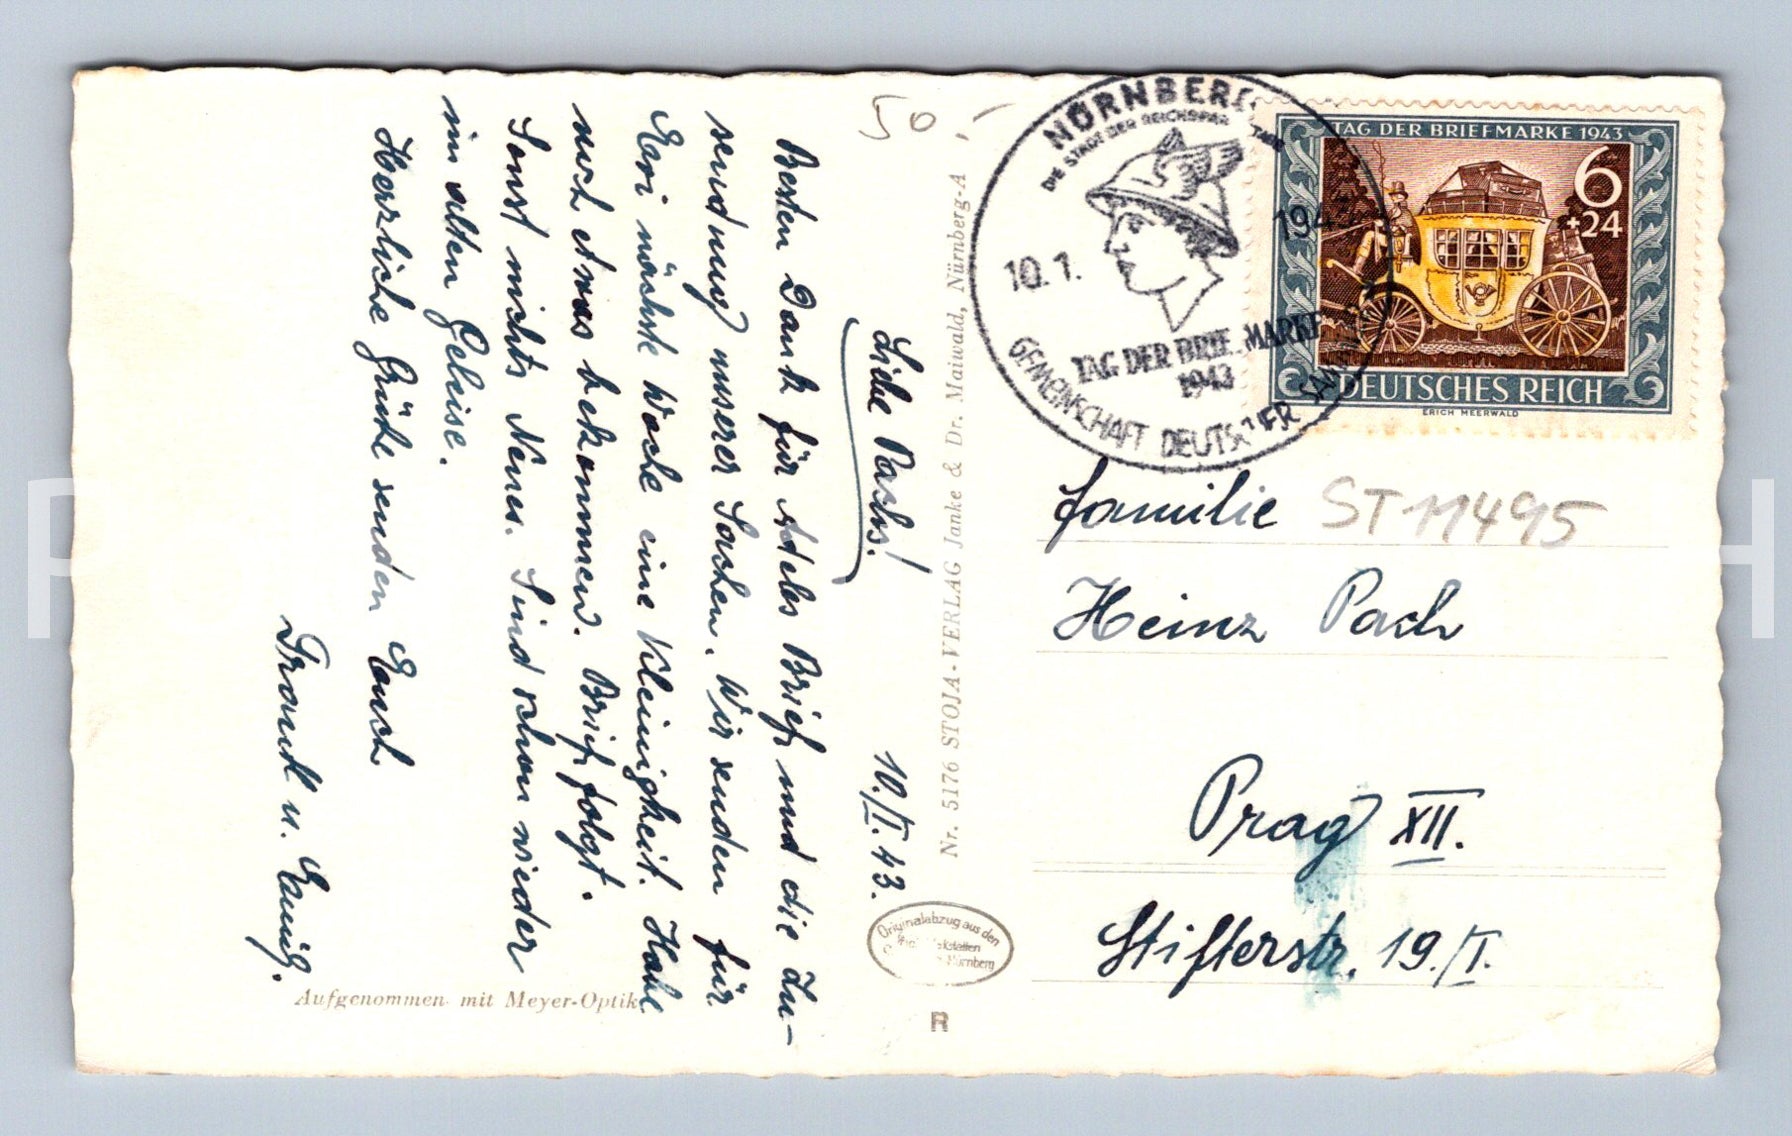 50,-
NÜRNBERG
DIE STADT DER REICHSPARTEITAGE
10.1. 1943
TAG DER BRIEFMARKE
1943
GEMEINSCHAFT DEUTSCHER SAMMLER
TAG DER BRIEFMARKE 1943
6
+24
DEUTSCHES REICH
ERICH MEERWALD
Familie
ST 11495
Heinz Pach
Prag XII.
Stifterstr. 19./I.
Nr. 5176 STOJA-VERLAG Janke & Dr. Maiwald, Nürnberg-A
10./I.43.
Liebe Pachs!
Besten Dank für Adeles Brief und die Zu-
sendung unserer Sachen. Wir senden für
Evi nächste Woche eine Kleinigkeit. Habe
noch etwas bekommen. Brief folgt.
Sonst nichts Neues. Sind schon wieder
im alten Geleise.
Herzliche Grüße senden Euch
Traudl u.
Aufgenommen mit Meyer-Optik
Originalabzug aus den
Nürnberg
R
P
H